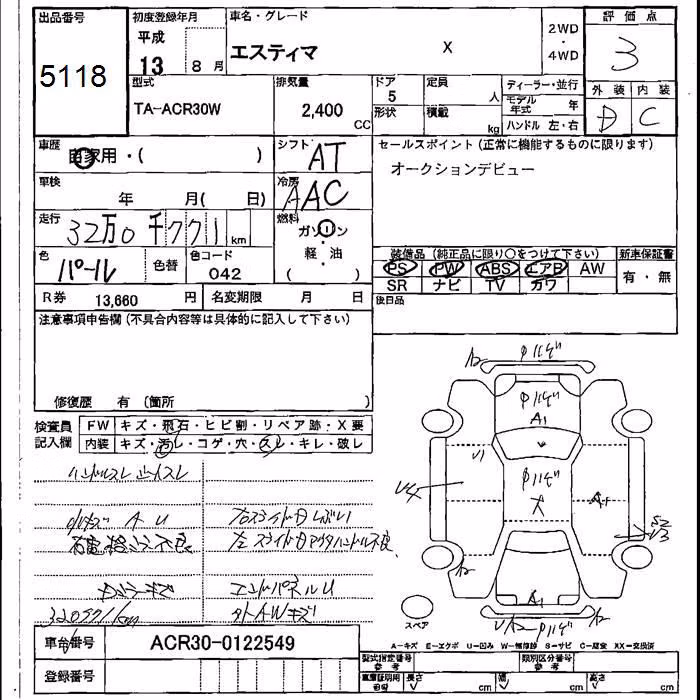 出品番号
5118
初度登録年月
平成
13 8月
車名・グレード
エスティマ X
2WD
・
4WD
評価点
3
外装 内装
D C
型式
TA-ACR30W
排気量
2,400 CC
ドア
5
形状
定員 人
積載 kg
ディーラー・並行
モデル年式 年
ハンドル 左・右
車歴
自家用・( )
シフト
AT
車検
年 月( 日)
冷房
AAC
走行
32万0千771km
燃料
ガソリン
・
軽油
( )
色
パール
色替
色コード
042
R券 13,660 円
名変期限 月 日
セールスポイント(正常に機能するものに限ります)
オークションデビュー
装備品(純正品に限り○をつけて下さい)
PS PW ABS エアB AW
SR ナビ TV ガワ
新車保証書
有・無
後日品
注意事項申告欄(不具合内容等は具体的に記入して下さい)
修復歴 有(箇所 )
検査員記入欄
FW キズ・飛石・ヒビ割・リペア跡・X要
内装 キズ・汚レ・コゲ・穴・スレ・キレ・破レ
ハンドルスレ
小キズ A U
右スライドドアしぶい
左スライドドアアウタハンドル不良
エンドパネルU
320771km
外AWキズ
スペア
A-キズ E-エクボ U-凹み W-補修跡 S-サビ C-腐食 XX-交換済
車台番号
ACR30-0122549
登録番号
型式指定番号
類別区分番号
車庫証明用 長さ cm 幅 cm 高さ cm